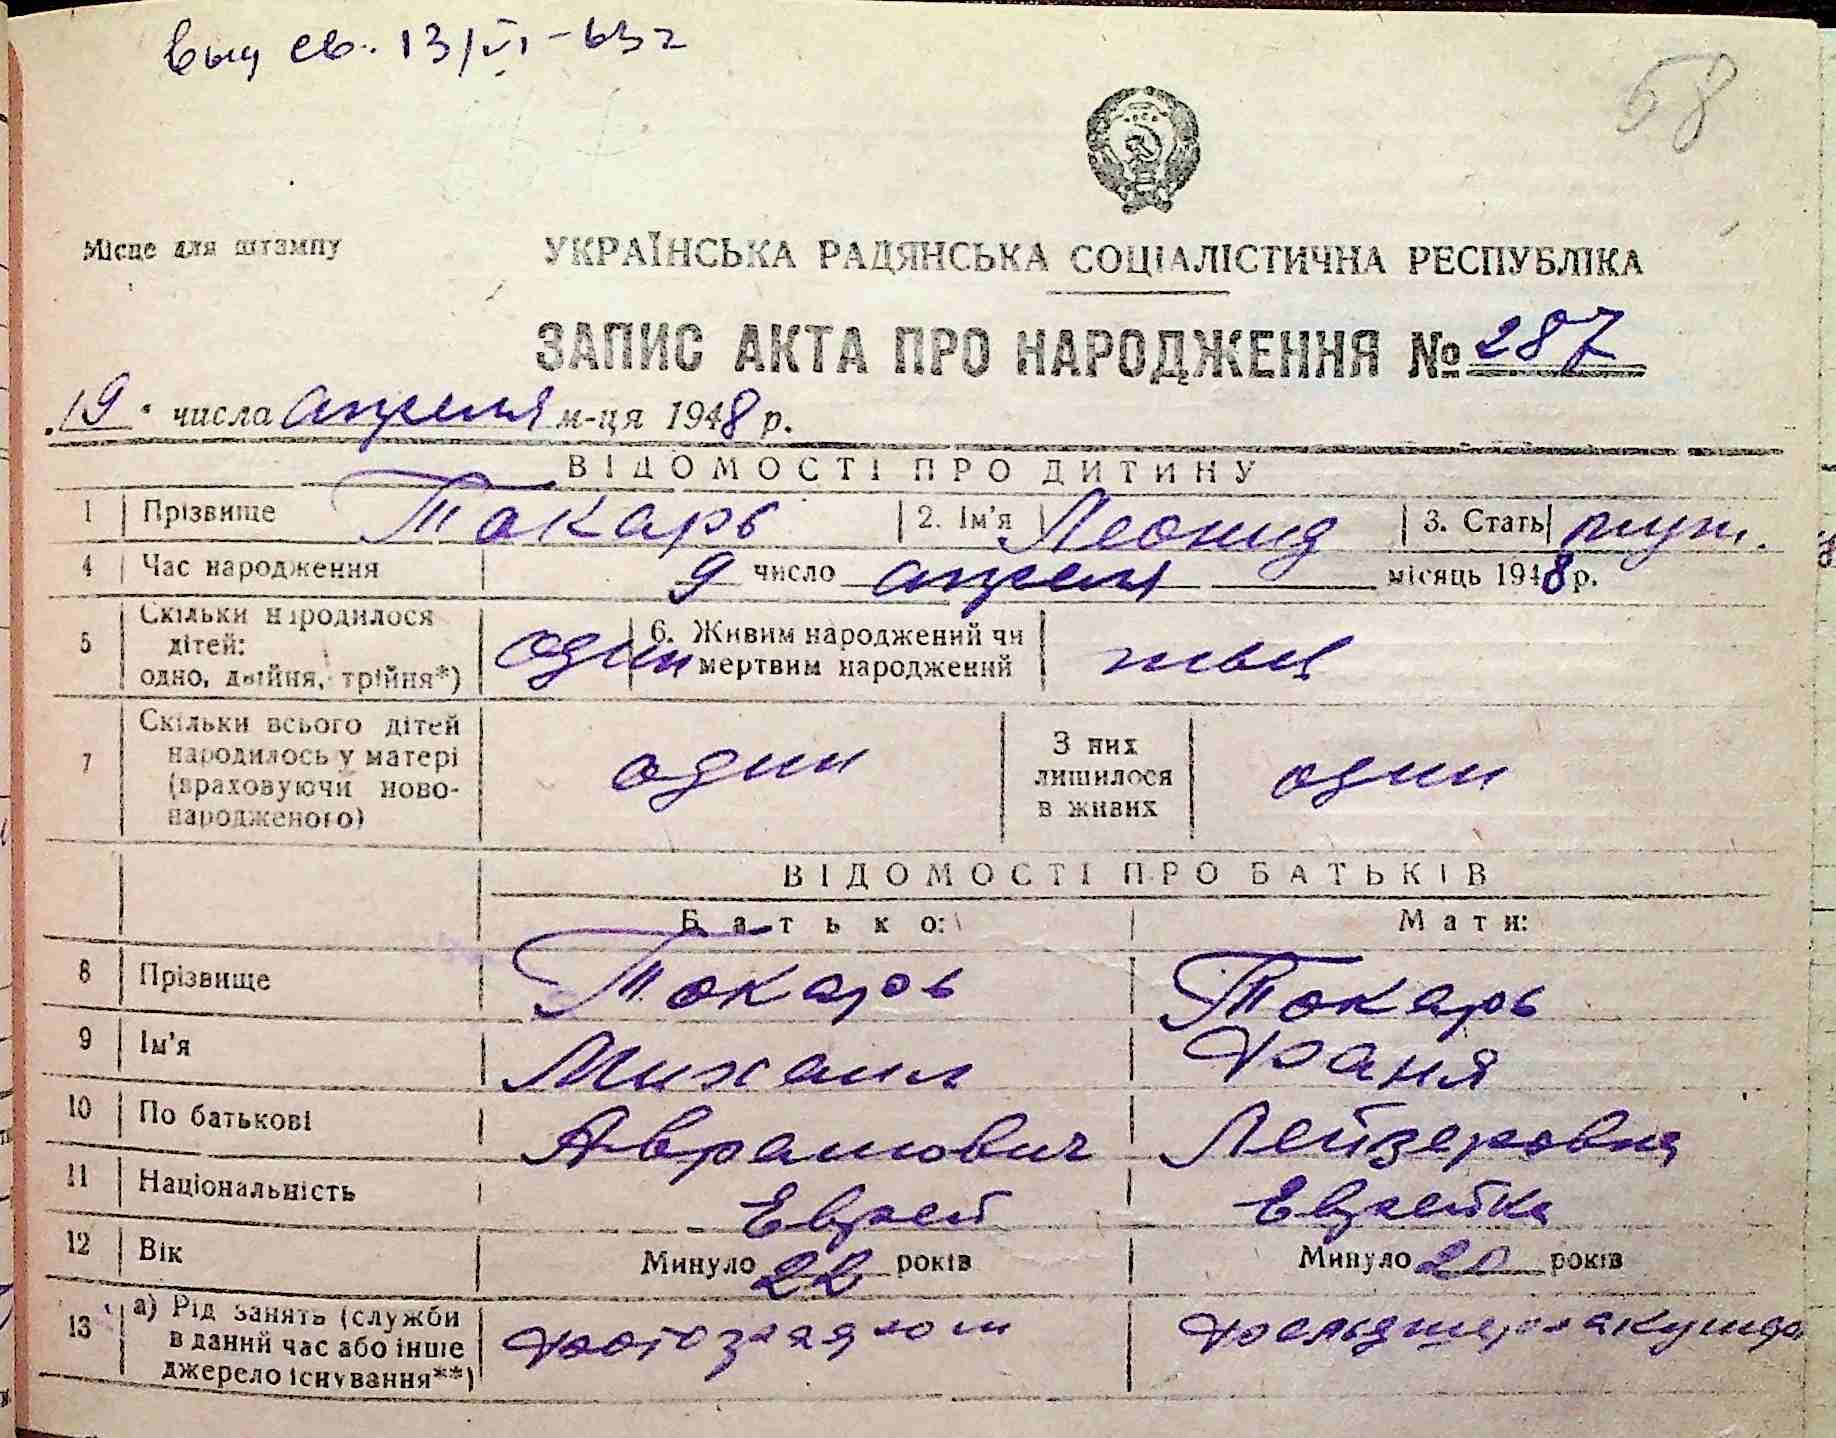 выд св. 13/VI-63 г
58
Місце для штампу
УКРАЇНСЬКА РАДЯНСЬКА СОЦІАЛІСТИЧНА РЕСПУБЛІКА
ЗАПИС АКТА ПРО НАРОДЖЕННЯ № 287
19 числа апреля м-ця 1948 р.
ВІДОМОСТІ ПРО ДИТИНУ
1 Прізвище Токарь 2. Ім'я Леонид 3. Стать муж.
4 Час народження 9 число апреля місяць 1948 р.
5 Скільки народилося дітей: одно, двійня, трійня*) один 6. Живим народжений чи мертвим народжений
7 Скільки всього дітей народилось у матері (враховуючи новонародженого) один З них лишилося в живих один
ВІДОМОСТІ ПРО БАТЬКІВ
Батько: Мати:
8 Прізвище Токарь Токарь
9 Ім'я Михаил Фаня
10 По батькові Аврамович Лейзеровна
11 Національність Еврей Еврейка
12 Вік Минуло 22 років Минуло 20 років
13 а) Рід занять (служби в даний час або інше джерело існування**)